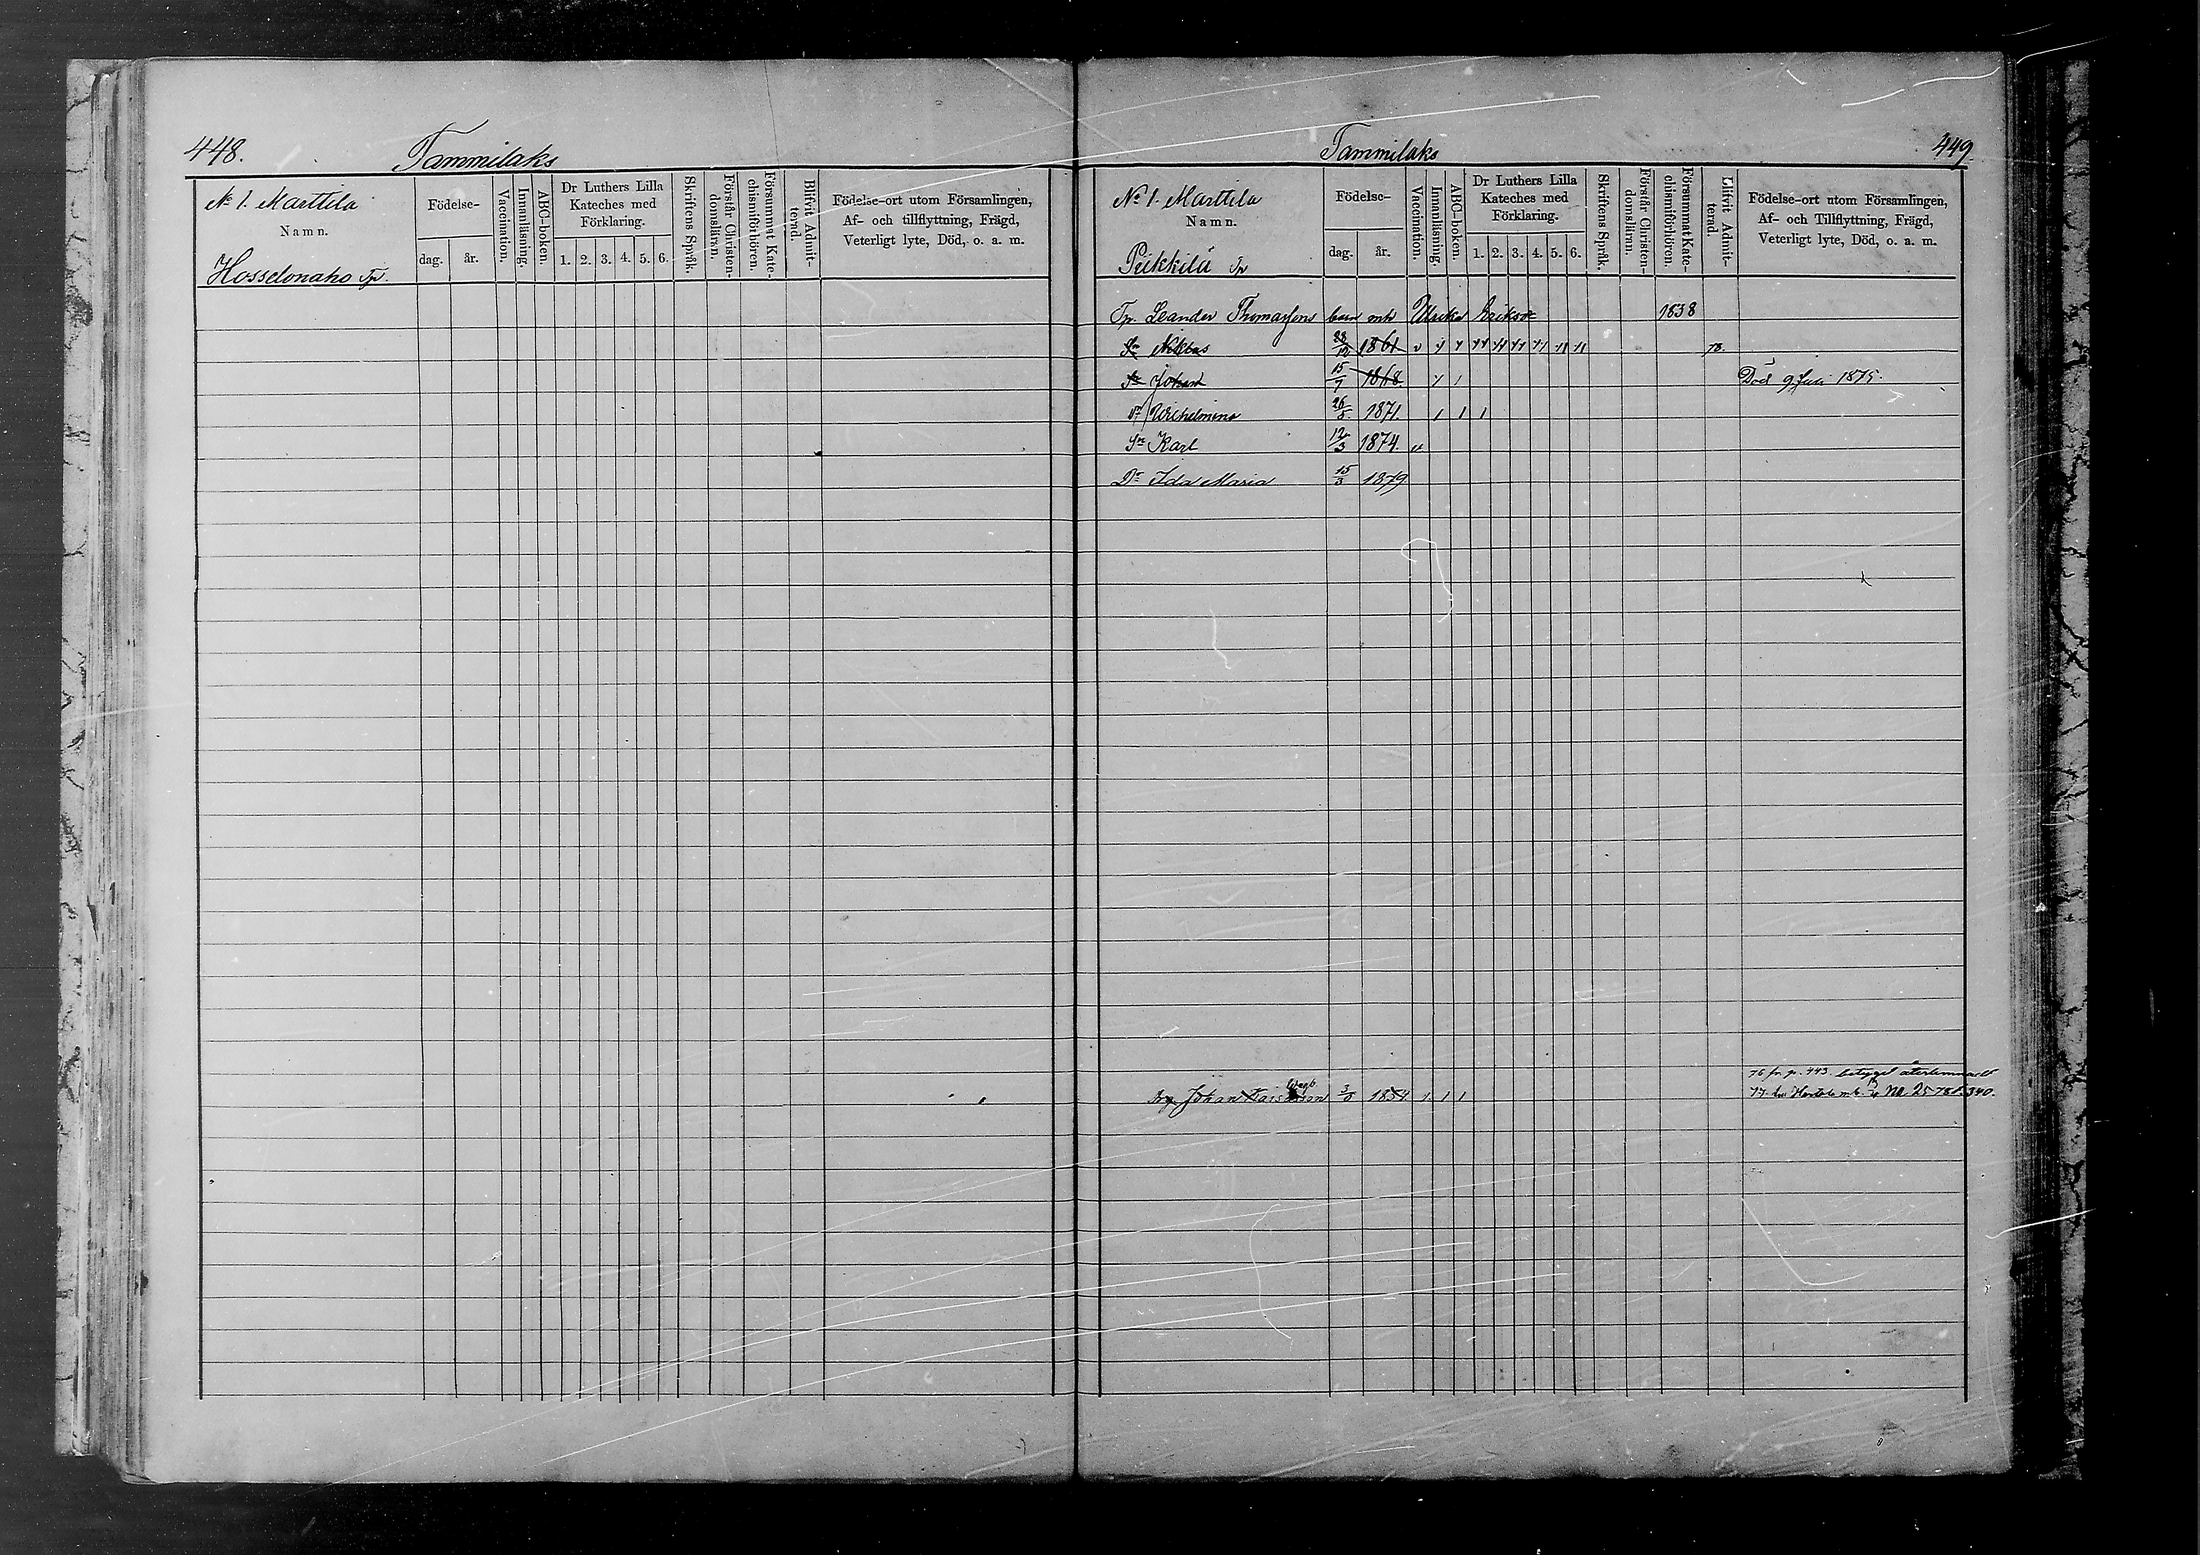 448.
Tammilaks
No 1. Marttila
Namn.
Hosselonaho Tp.
Födelse-
dag. år.
Vaccination.
Innanläsning.
ABC-boken.
Dr Luthers Lilla
Kateches med
Förklaring.
1. 2. 3. 4. 5. 6.
Skriftens Språk.
Förstår Christen-
domsläran.
Försummat Kate-
chismiförhören.
Blifvit Admit-
terad.
Födelse-ort utom Församlingen,
Af- och tillflyttning, Frägd,
Veterligt lyte, Död, o. a. m.
Tammilaks
449
No 1. Marttila
Namn.
Piikkilä Tp
Födelse-
dag. år.
Vaccination.
Innanläsning.
ABC-boken.
Dr Luthers Lilla
Kateches med
Förklaring.
1. 2. 3. 4. 5. 6.
Skriftens Språk.
Förstår Christen-
domsläran.
Försummat Kate-
chismiförhören.
Blifvit Admit-
terad.
Födelse-ort utom Församlingen,
Af- och Tillflyttning, Frägd,
Veterligt lyte, Död, o. a. m.
Tp. Leander Thomassons barn med Ulrika Eriksdr 1838
Sn Niklas 28/12 1861 v 78.
Sn Johan 15/7 1868 Död 9 Juli 1875.
Dr Wilhelmina 26/5 1871.
Sn Karl 12/3 1874. v
Dr Ida Maria 15/3 1879
76 fr. p. 443. betyget återlemnadt
Johan 3/6 1854 77. No 25 78 p. 340.